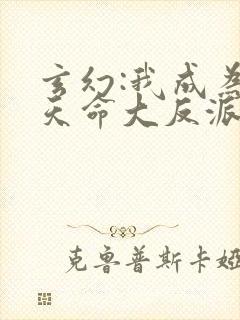 玄幻:我成为
天命大反派
克鲁普斯卡娅